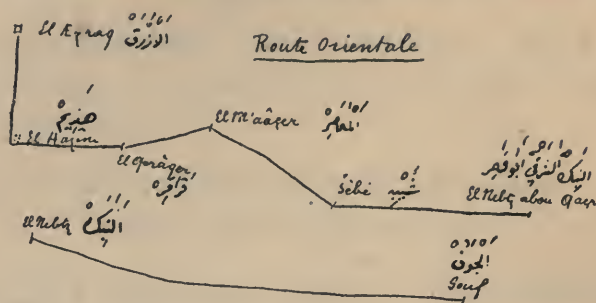 El Ezraq الازرق
Route Orientale
هزيم
El Hazîm
El Qerâqer
قراقر
El M'aâçer المعاصر
Sébé
النبك الشرقي أبو قصر
El Nebk abou Qaçr
El Nebk النبك
الجوف
Gouf